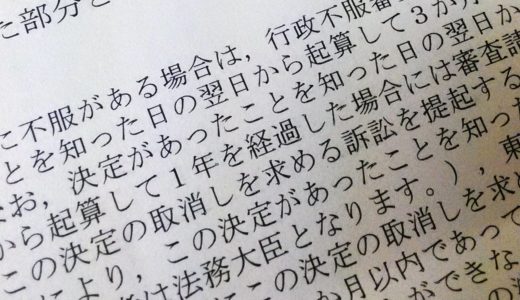 た部分
に不服がある場合は，行政不服審
とを知った日の翌日から起算して３か月
お，決定があったことを知った日の翌日か
から起算して１年を経過した場合には審査請
この決定の取消しを求める訴訟を提起する
により，この決定があったことを知った
は法務大臣となります。），東
この決定の取消しを求め
か月以内であって
ができな